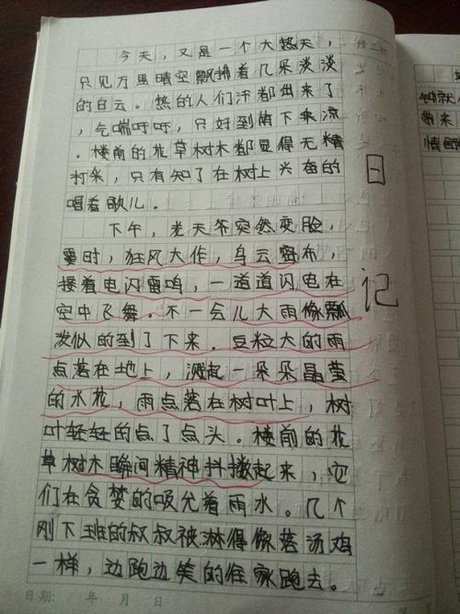 今天,又是一个大热天,
只见万里晴空飘拂着几朵淡淡
的白云。热的人们汗都出来了
,气喘吁吁,只好到荫下来凉
。楼前的花草树木都显得无精
打采,只有知了在树上兴奋的
唱着歌儿。
下午,老天爷突然变脸,
霎时,狂风大作,乌云密布,
接着电闪雷鸣,一道道闪电在
空中飞舞。不一会儿大雨像瓢
泼似的到了下来。豆粒大的雨
点落在地上,溅起一朵朵晶莹
的水花,雨点落在树叶上,树
叶轻轻的点了点头。楼前的花
草树木瞬间精神抖擞起来,它
们在贪婪的吸允着雨水。几个
刚下班的叔叔被淋得像落汤鸡
一样,边跑边笑的往家跑去。
日记
日期: 年 月 日
带来